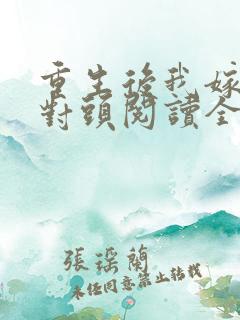 重生後我嫁
對頭閱讀全
張瑶蘭
未經同意禁止轉載